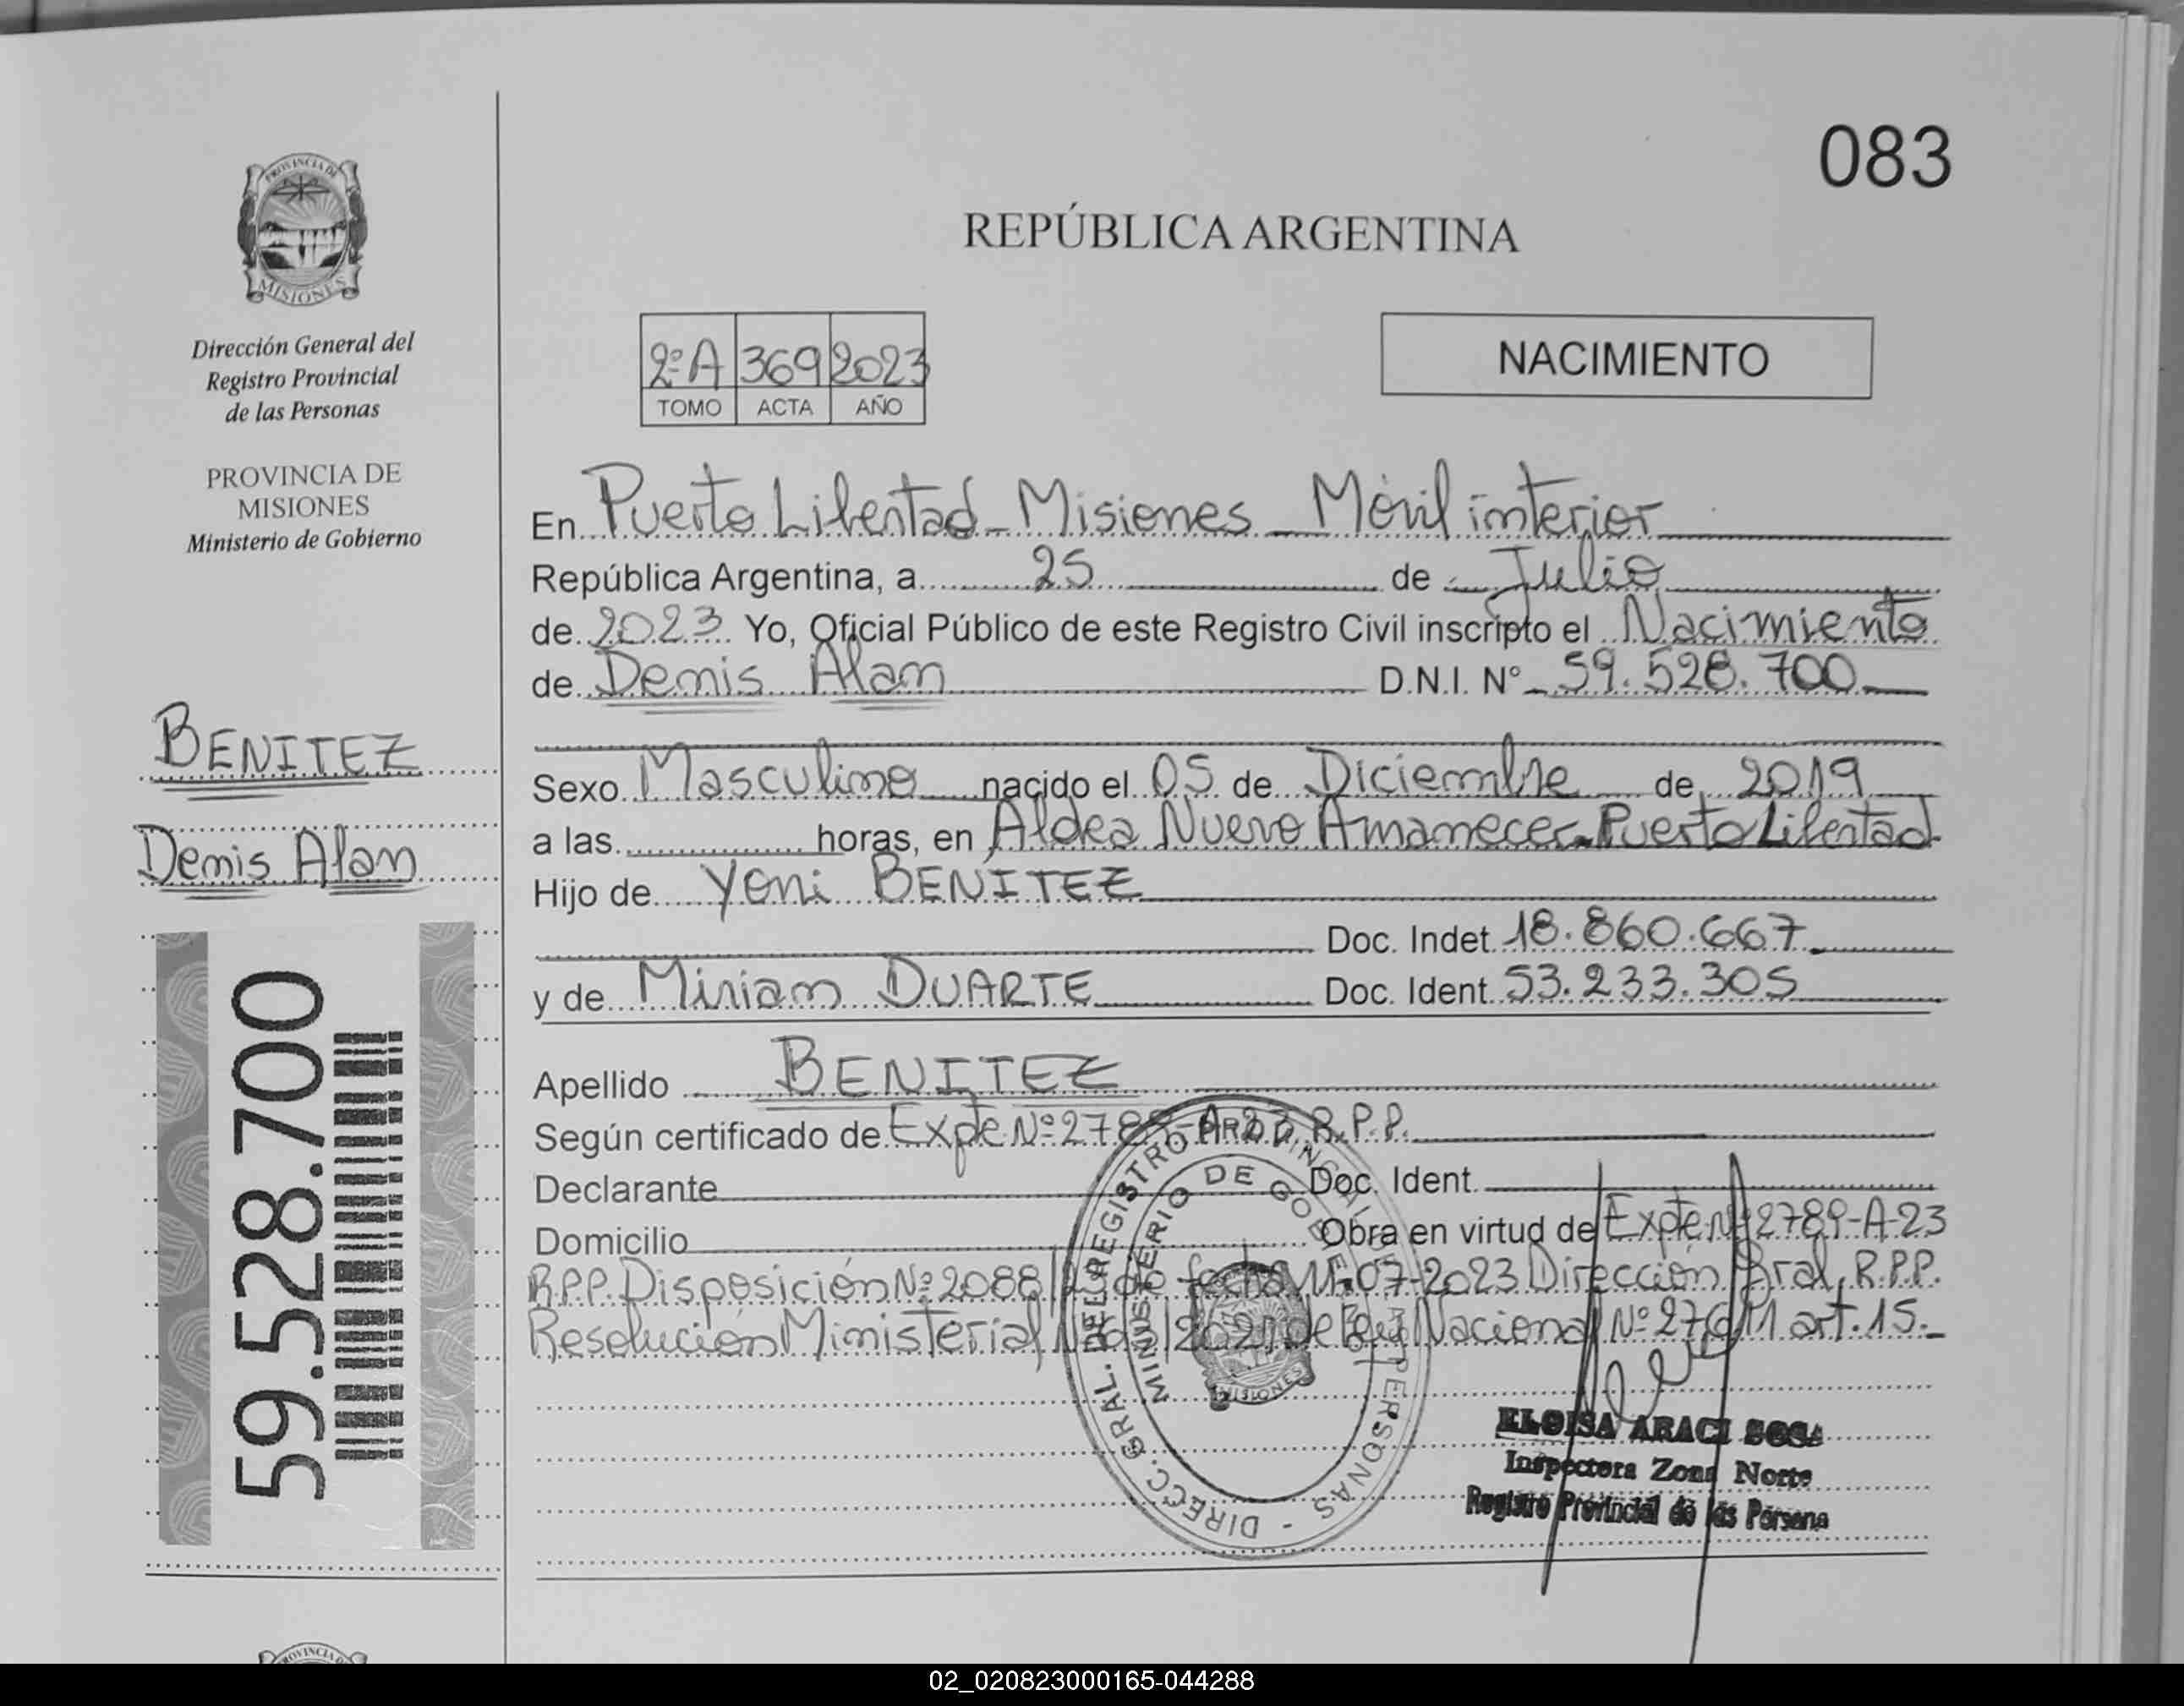 083
REPÚBLICA ARGENTINA
PROVINCIA DE
MISIONES
Dirección General del
Registro Provincial
de las Personas
PROVINCIA DE
MISIONES
Ministerio de Gobierno
BENITEZ
Demis Alan
59.528.700
2º A 369 2023
TOMO ACTA AÑO
NACIMIENTO
En Puerto Libertad - Misiones - Móvil interior
República Argentina, a 25 de Julio
de 2023 Yo, Oficial Público de este Registro Civil inscripto el Nacimiento
de Demis Alam D.N.I. N° 59.528.700
Sexo Masculino nacido el 05 de Diciembre de 2019
a las horas, en Aldea Nuevo Amamecer - Puerto Libertad
Hijo de Yoni BENITEZ
Doc. Indet 18.860.667
y de Miriam DUARTE Doc. Ident 53.233.305
Apellido BENITEZ
Según certificado de Expte Nº 2789-A-23 R.P.P.
Declarante Doc. Ident.
Domicilio Obra en virtud de Expte Nº 2789-A-23
R.P.P. Disposición Nº 2088 de fecha 11-07-2023 Dirección Gral. R.P.P.
Resolución Ministerial 2021 de Ley Nacional Nº 27611 art. 15.
DIRECC. GRAL. DEL REGISTRO PROVINCIAL PERSONAS
MINISTERIO DE GOBIERNO
MISIONES
ELOISA ARACI SOSA
Inspectora Zona Norte
Registro Provincial de las Persona
PROVINCIA DE
02_020823000165-044288